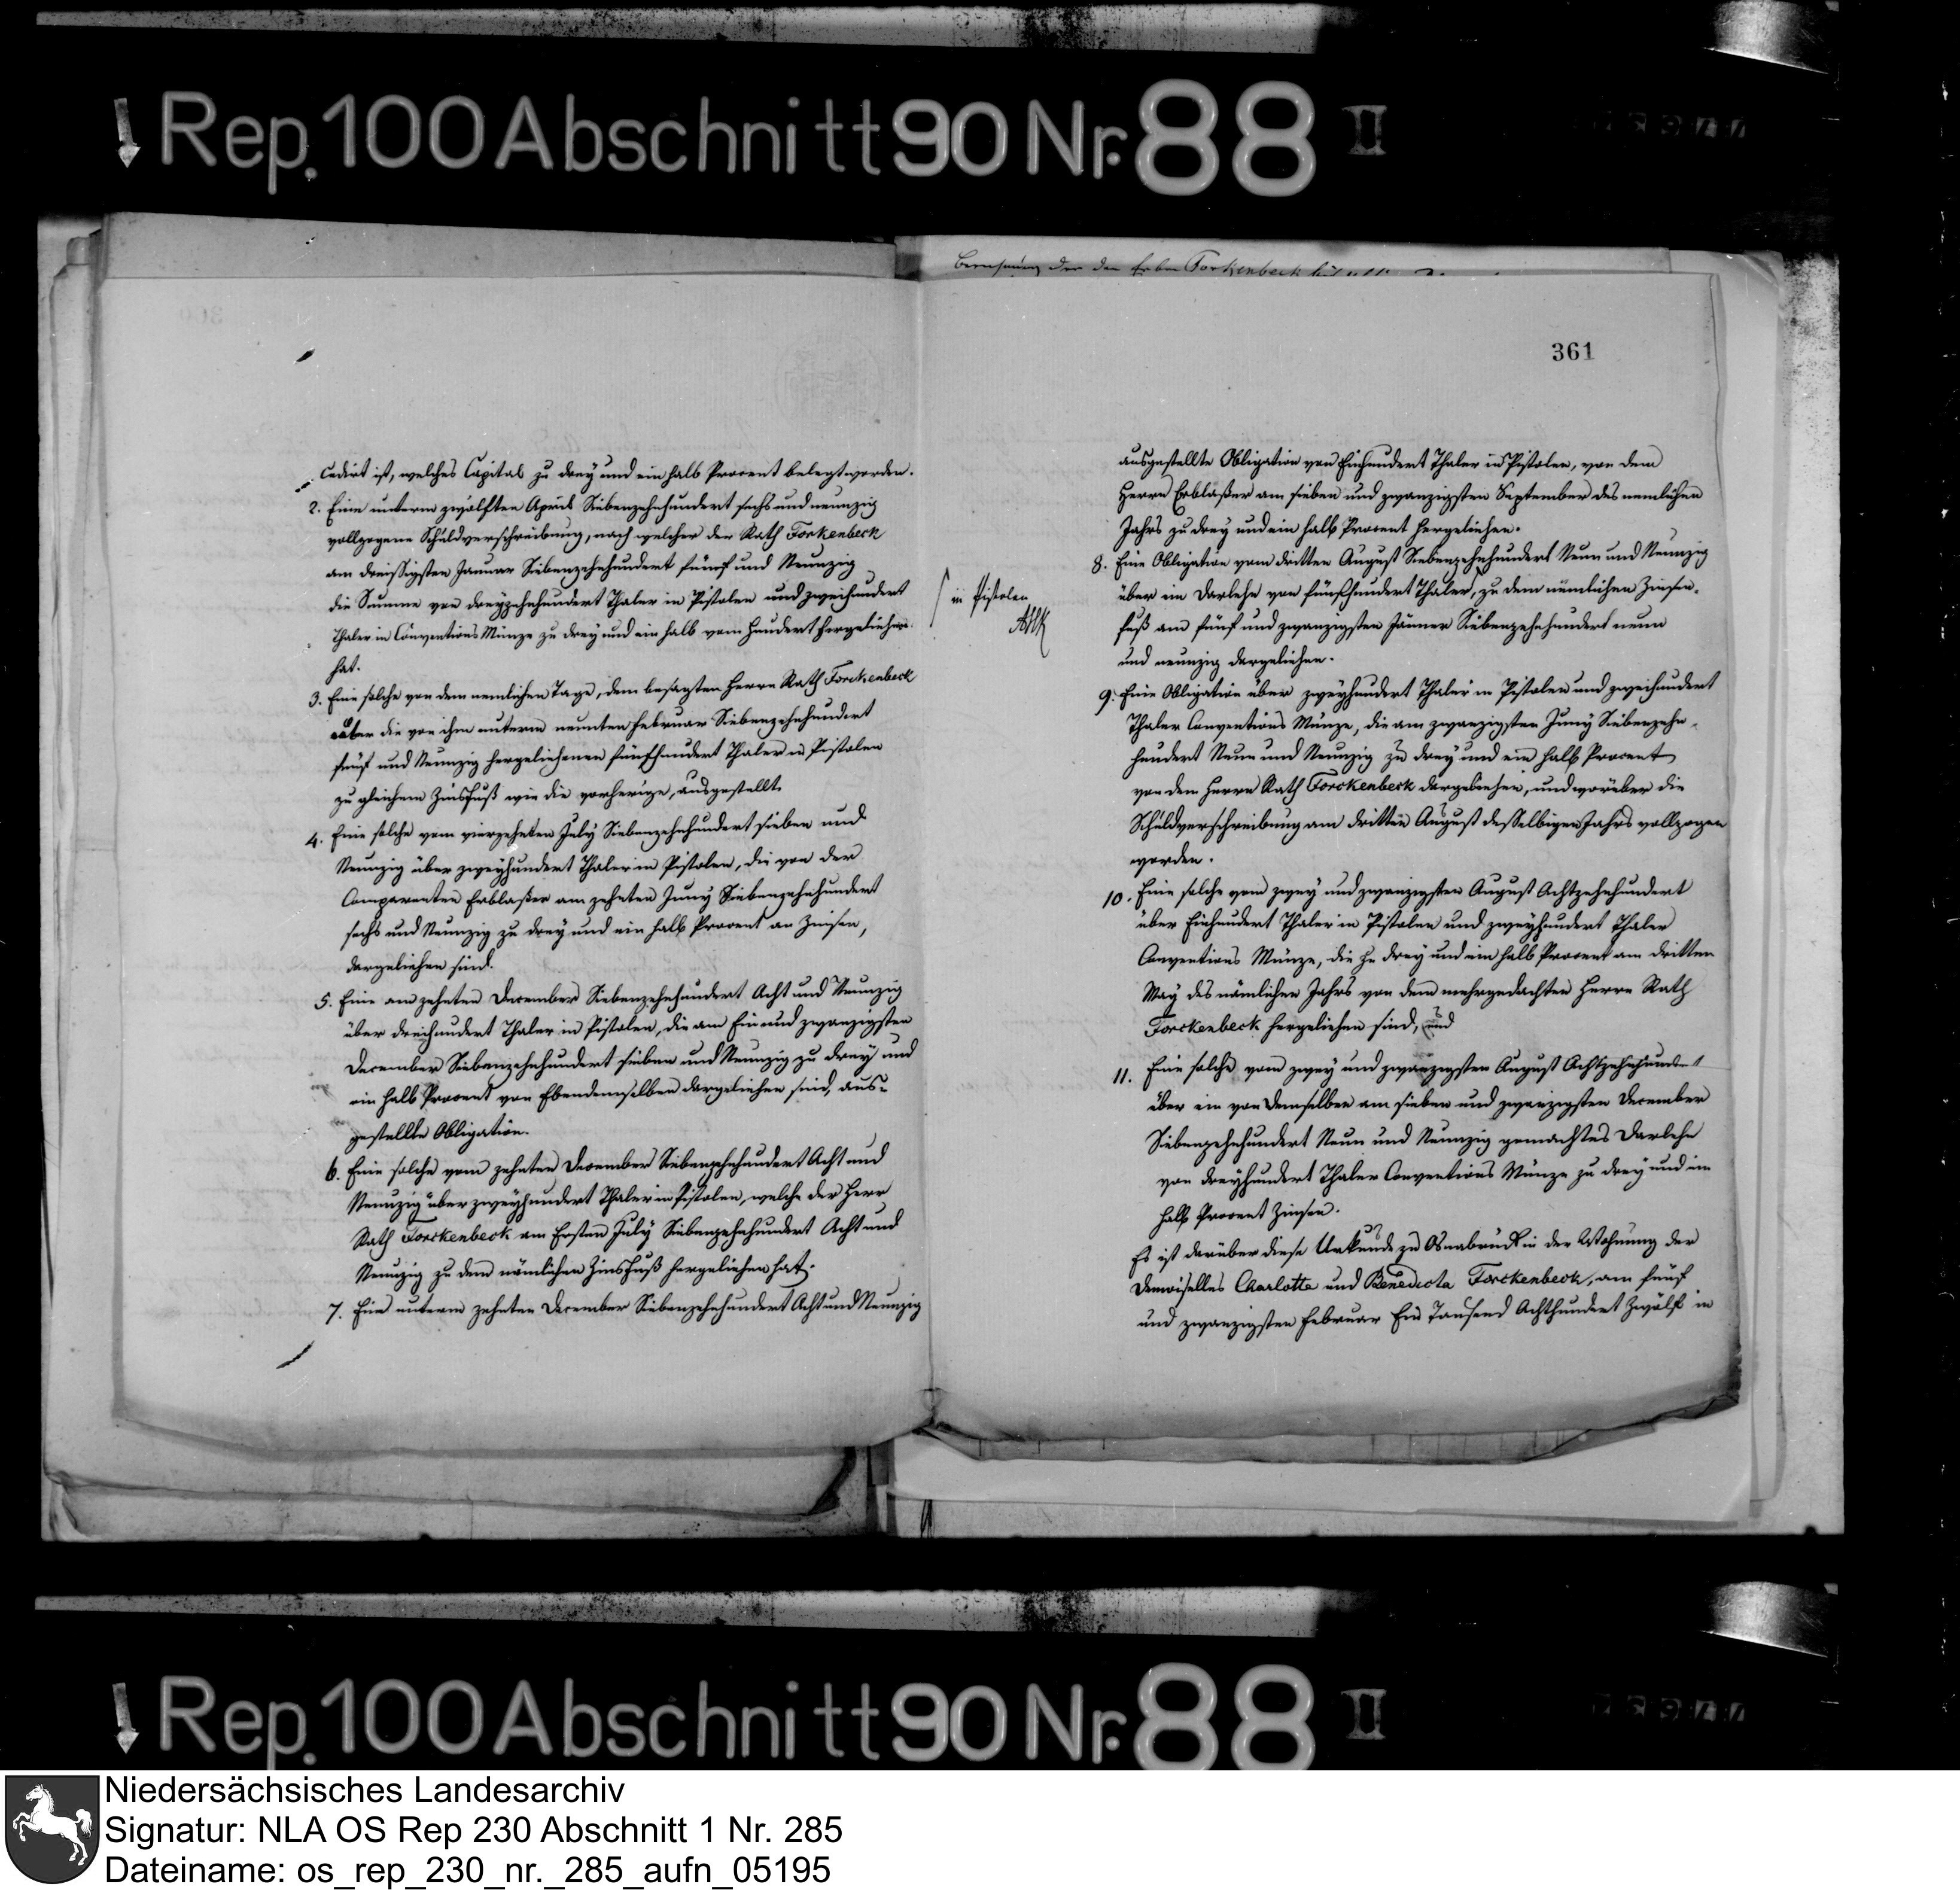 Rep. 100 Abschnitt 90 Nr. 88 II
der den Erben Forkenbeck
361
cedirt ist, welches Capital zu drey und ein halb Procent belegt worden.
2. Eine unterm zwölften April Siebenzehnhundert sechs und neunzig
vollzogene Schuldverschreibung, nach welcher der Rath Forkenbeck
am dreissigsten Januar Siebenzehnhundert fünf und Neunzig
die Summe von dreyzehnhundert Thaler in Pistolen und zweihundert
Thaler in Conventions Münze zu drey und ein halb vom Hundert hergeliehen
hat.
3. Eine solche von dem nemlichen Tage, dem besagten Herrn Rath Forckenbeck
über die von ihm unterm neunten Februar Siebenzehnhundert
fünf und Neunzig hergeliehenen fünfhundert Thaler in Pistolen
zu gleichem Zinsfuß wie die vorherige, ausgestellt.
4. Eine solche vom vierzehnten July Siebenzehnhundert sieben und
Neunzig über zweyhundert Thaler in Pistolen, die von der
Comparenten Erblaßer am zehnten Juny Siebenzehnhundert
sechs und Neunzig zu drey und ein halb Procent an Zinsen,
dargeliehen sind.
5. Eine am zehnten December Siebenzehnhundert Acht und Neunzig
über dreihundert Thaler in Pistolen, die am Ein und zwanzigsten
December Siebenzehnhundert sieben und Neunzig zu drey und
ein halb Procent von Ebendemselben dargeliehen sind, aus-
gestellte Obligation.
6. Eine solche vom zehnten December Siebenzehnhundert Acht und
Neunzig über zweyhundert Thaler in Pistolen, welche der Herr
Rath Forckenbeck am Ersten July Siebenzehnhundert Acht und
Neunzig zu dem nämlichen Zinsfuß hergeliehen hat.
7. Eine unterm zehnten December Siebenzehnhundert Acht und Neunzig
in Pistolen
ausgestellte Obligation von Einhundert Thaler in Pistolen, von dem
Herrn Erblaßer am sieben und zwanzigsten September des nemlichen
Jahrs zu drey und ein halb Procent hergeliehen.
8. Eine Obligation vom dritten August Siebenzehnhundert Neun und Neunzig
über ein Darlehn von fünfhundert Thaler, zu dem nämlichen Zinsen-
fuß am fünf und zwanzigsten Jänner Siebenzehnhundert neun
und neunzig dargeliehen.
9. Eine Obligation über zweyhundert Thaler in Pistolen und zweihundert
Thaler Conventions Münze, die am zwanzigsten Juny Siebenzehn-
hundert Neun und Neunzig zu drey und ein halb Procent
von dem Herrn Rath Forckenbeck dargeliehen, und worüber die
Schuldverschreibung am dritten August desselbigen Jahrs vollzogen
worden.
10. Eine solche vom zwey und zwanzigsten August Achtzehnhundert
über Einhundert Thaler in Pistolen und zweyhundert Thaler
Conventions Münze, die zu drey und ein halb Procent am dritten
May des nämlichen Jahrs von dem mehrgedachten Herrn Rath
Forckenbeck hergeliehen sind, und
11. Eine solche vom zwey und zwanzigsten August Achtzehnhundert
über ein von demselben am sieben und zwanzigsten December
Siebenzehnhundert Neun und Neunzig gemachtes Darlehn
von dreyhundert Thaler Conventions Münze zu drey und ein
halb Procent Zinsen.
Es ist darüber diese Urkunde zu Osnabrück in der Wohnung der
Demoiselles Charlotte und Benedicta Forckenbeck, am fünf
und zwanzigsten Februar Ein Tausend Achthundert Zwölf in
Rep. 100 Abschnitt 90 Nr. 88 II
Niedersächsisches Landesarchiv
Signatur: NLA OS Rep 230 Abschnitt 1 Nr. 285
Dateiname: os_rep_230_nr._285_aufn_05195